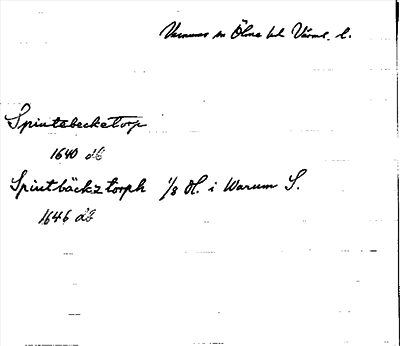 Varnums sn Ölme hd Värml. l.
Spintebecketorp
1640 db
Spintbäckz torph 1/8 Öl. i Warum S.
1646 db